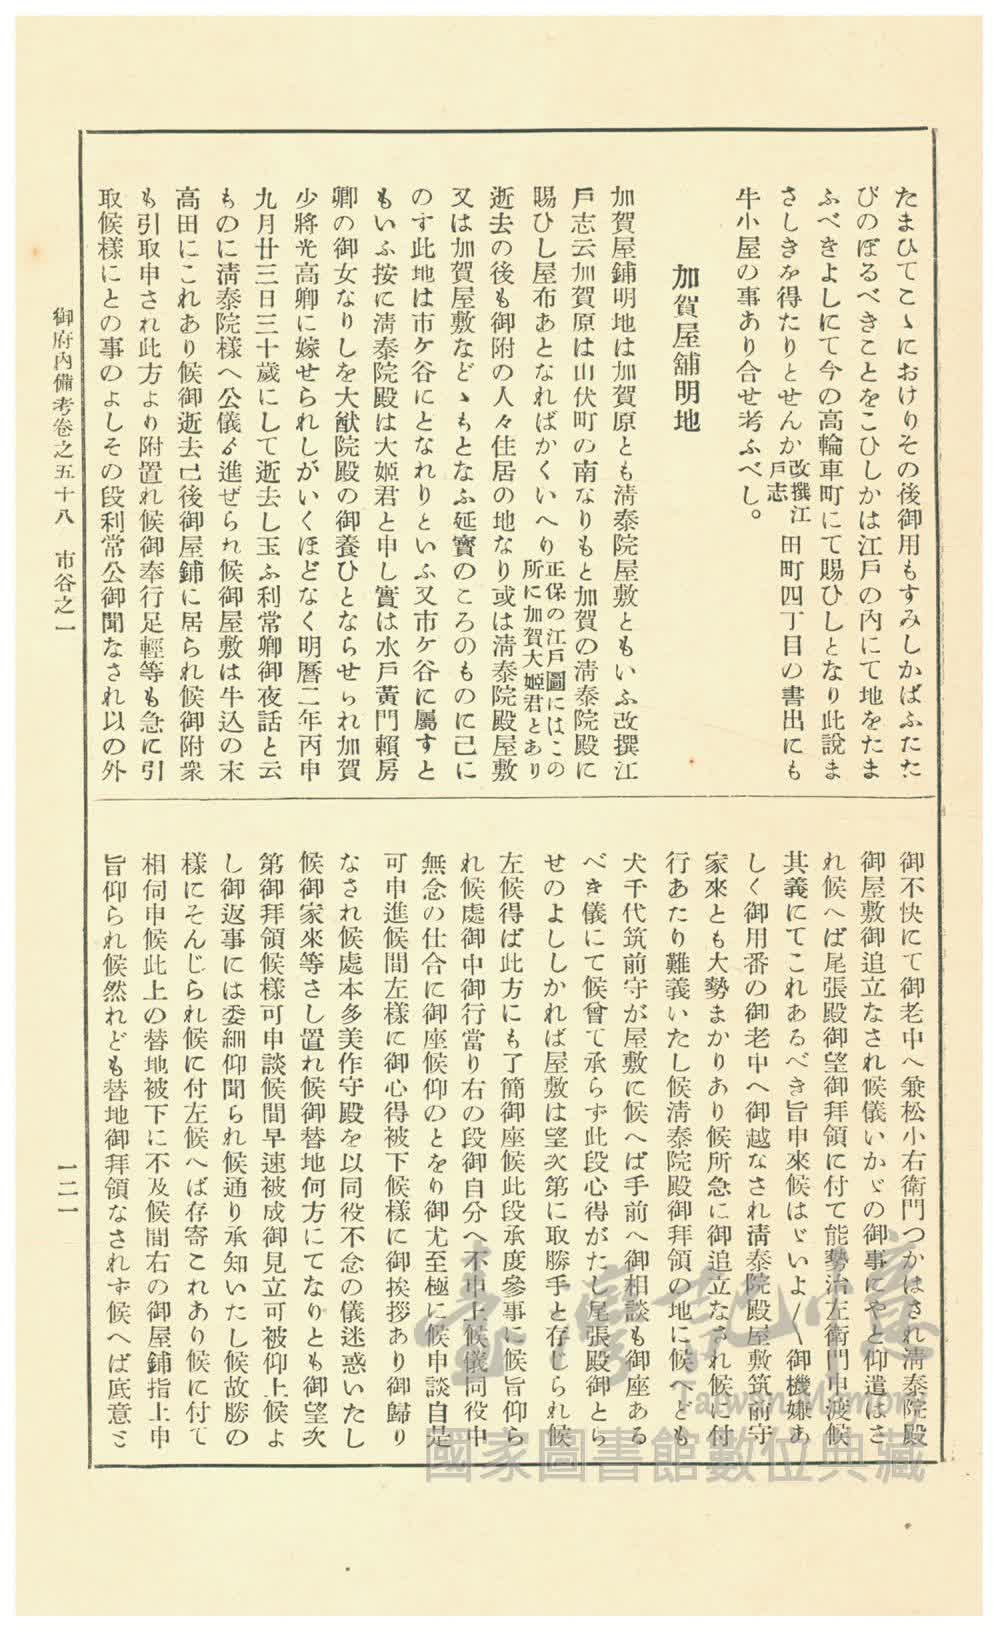 たまひてこゝにおけりその後御用もすみしかばふたた
びのぼるべきことをこひしかは江戸の内にて地をたま
ふべきよしにて今の高輪車町にて賜ひしとなり此說ま
さしきを得たりとせんか改撰江戶志田町四丁目の書出にも
牛小屋の事あり合せ考ふべし。
加賀屋舖明地
加賀屋鋪明地は加賀原とも淸泰院屋敷ともいふ改撰江
戶志云加賀原は山伏町の南なりもと加賀の淸泰院殿に
賜ひし屋布あとなればかくいへり正保の江戶圖にはこの所に加賀大姬君とあり
逝去の後も御附の人々住居の地なり或は淸泰院殿屋敷
又は加賀屋敷などゝもとなふ延寶のころのものに已に
のす此地は市ケ谷にとなれりといふ又市ケ谷に屬すと
もいふ按に淸泰院殿は大姬君と申し實は水戶黃門賴房
卿の御女なりしを大猷院殿の御養ひとならせられ加賀
少將光高卿に嫁せられしがいくほどなく明曆二年丙申
九月廿三日三十歲にして逝去し玉ふ利常卿御夜話と云
ものに淸泰院樣へ公儀ゟ進ぜられ候御屋敷は牛込の末
高田にこれあり候御逝去已後御屋鋪に居られ候御附衆
も引取申され此方より附置れ候御奉行足輕等も急に引
取候樣にとの事のよしその段利常公御聞なされ以の外
御不快にて御老中へ兼松小右衞門つかはされ淸泰院殿
御屋敷御追立なされ候儀いかゞの御事にやと仰遣はさ
れ候へば尾張殿御望御拜領に付て能勢治左衞門申渡候
其義にてこれあるべき旨申來候はゞいよ〱御機嫌あ
しく御用番の御老中へ御越なされ淸泰院殿屋敷筑前守
家來とも大勢まかりあり候所急に御追立なされ候に付
行あたり難義いたし候淸泰院殿御拜領の地に候へども
犬千代筑前守が屋敷に候へば手前へ御相談も御座ある
べき儀にて候曾て承らず此段心得がたし尾張殿御とら
せのよししかれば屋敷は望次第に取勝手と存じられ候
左候得ば此方にも了簡御座候此段承度參事に候旨仰ら
れ候處御中御行當り右の段御自分へ不申上候儀同役中
無念の仕合に御座候仰のとをり御尤至極に候申談自是
可申進候間左樣に御心得被下候樣に御挨拶あり御歸り
なされ候處本多美作守殿を以同役不念の儀迷惑いたし
候御家來等さし置れ候御替地何方にてなりとも御望次
第御拜領候樣可申談候間早速被成御見立可被仰上候よ
し御返事には委細仰聞られ候通り承知いたし候故勝の
樣にそんじられ候に付左候へば存寄これあり候に付て
相伺申候此上の替地被下に不及候間右の御屋鋪指上申
旨仰られ候然れども替地御拜領なされず候へば底意ミ
御府內備考卷之五十八　市谷之一
一二一
臺灣記憶
Taiwan Memory
國家圖書館數位典藏